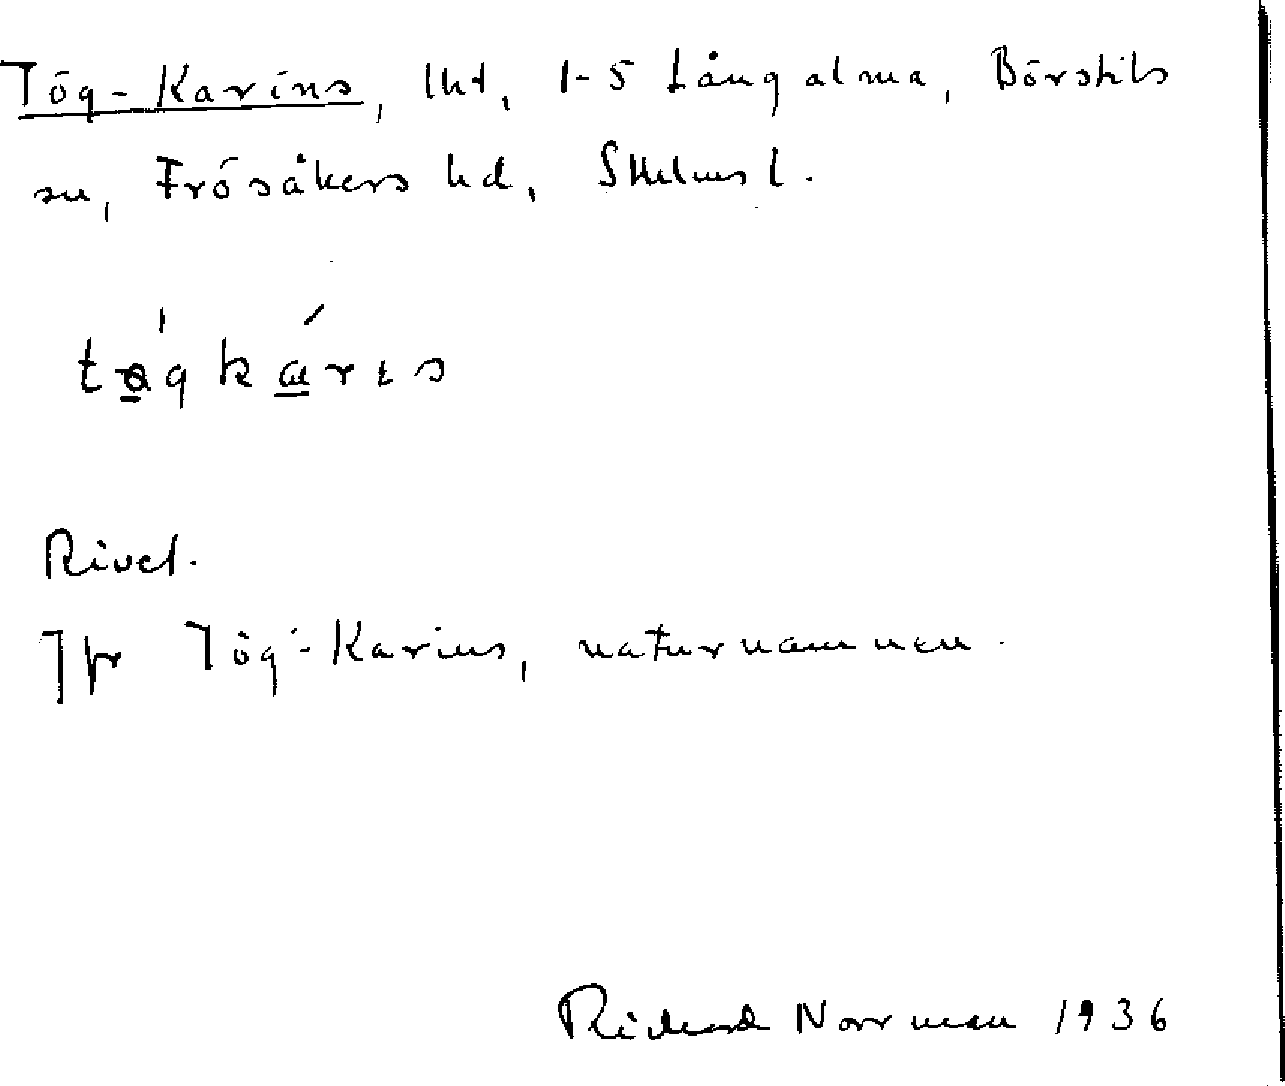 Tög-Karins, lht, 1-5 Långalma, Börstils
sn, Frösåkers hd, Sthlms l.
Rivet.
Jfr Tög-Karins, naturnamnen.
Richard Norrman 1936